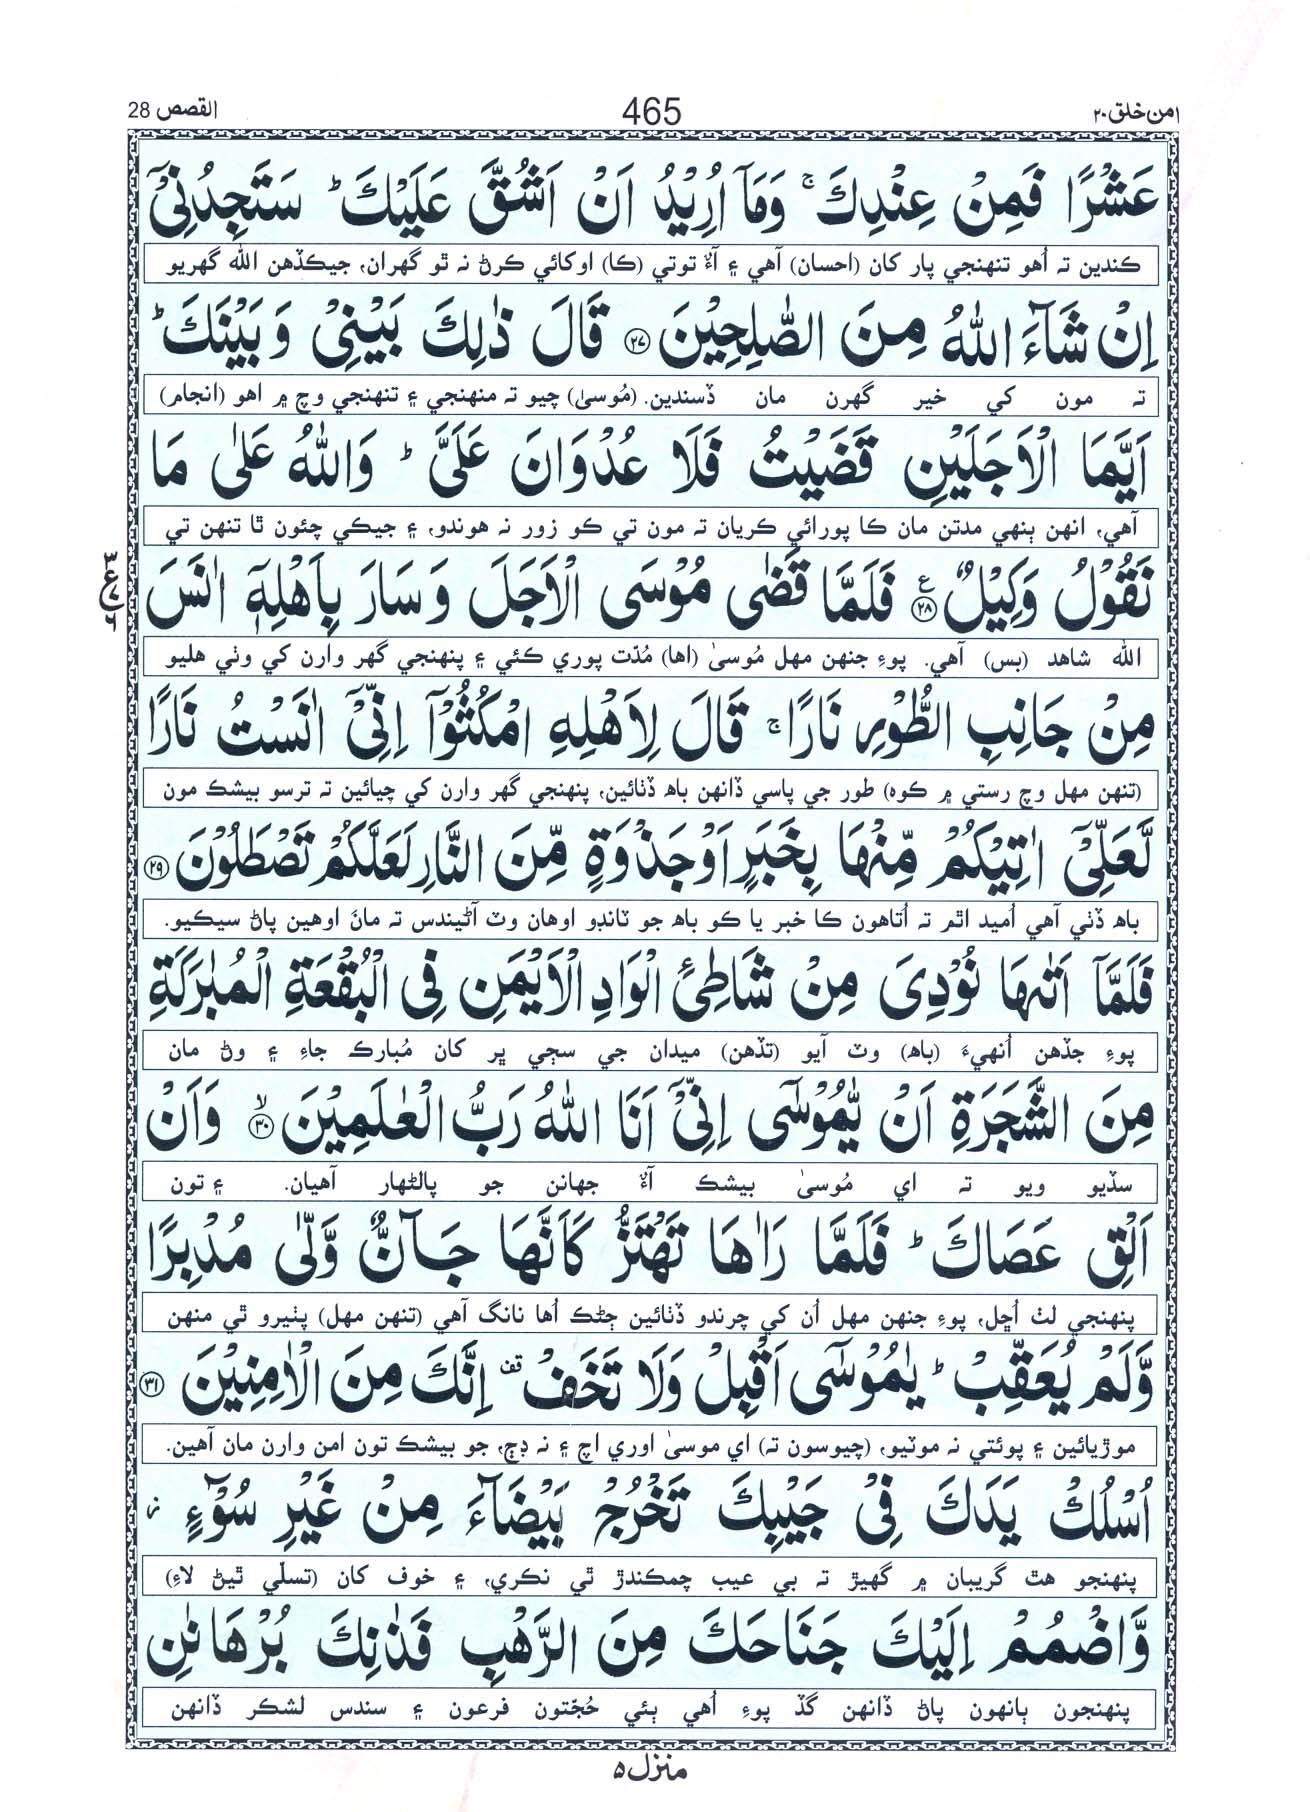 امن خلق ۲۰ 465 القصص 28
عَشْرًا فَمِنْ عِنْدِكَ ۚ وَمَاۤ اُرِيْدُ اَنْ اَشُقَّ عَلَيْكَ ؕ سَتَجِدُنِيْۤ
ڪندين تہ اُهو تنهنجي پار کان (احسان) آهي ۽ آءٌ توتي (ڪا) اوکائي ڪرڻ نہ ٿو گهران، جيڪڏهن الله گهريو
اِنْ شَآءَ اللّٰهُ مِنَ الصّٰلِحِيْنَ ﴿۲۷﴾ قَالَ ذٰلِكَ بَيْنِيْ وَ بَيْنَكَ ؕ
تہ مون کي خير گهرن مان ڏسندين. (مُوسىٰ) چيو تہ منهنجي ۽ تنهنجي وچ ۾ اهو (انجام)
اَيَّمَا الْاَجَلَيْنِ قَضَيْتُ فَلَا عُدْوَانَ عَلَيَّ ؕ وَاللّٰهُ عَلٰى مَا
آهي، انهن ٻنهي مدتن مان ڪا پورائي ڪريان تہ مون تي ڪو زور نہ هوندو، ۽ جيڪي چئون ٿا تنهن تي
نَقُوْلُ وَكِيْلٌ ﴿۲۸﴾ ع فَلَمَّا قَضٰى مُوْسَى الْاَجَلَ وَ سَارَ بِاَهْلِهٖۤ اٰنَسَ
الله شاهد (بس) آهي. پوءِ جنهن مهل مُوسىٰ (اها) مُدّت پوري ڪئي ۽ پنهنجي گهر وارن کي وٺي هليو
مِنْ جَانِبِ الطُّوْرِ نَارًا ۚ قَالَ لِاَهْلِهِ امْكُثُوْۤا اِنِّيْۤ اٰنَسْتُ نَارًا
(تنهن مهل وچ رستي ۾ کوه) طور جي پاسي ڏانهن باھ ڏٺائين، پنهنجي گهر وارن کي چيائين تہ ترسو بيشڪ مون
لَّعَلِّيْۤ اٰتِيْكُمْ مِّنْهَا بِخَبَرٍ اَوْ جَذْوَةٍ مِّنَ النَّارِ لَعَلَّكُمْ تَصْطَلُوْنَ ﴿۲۹﴾
باھ ڏٺي آهي اُميد اٿم تہ اُتاهون ڪا خبر يا ڪو باھ جو ٽانڊو اوهان وٽ آڻيندس تہ مانَ اوهين پاڻ سيڪيو.
فَلَمَّاۤ اَتٰىهَا نُوْدِيَ مِنْ شَاطِئِ الْوَادِ الْاَيْمَنِ فِي الْبُقْعَةِ الْمُبٰرَكَةِ
پوءِ جڏهن اُنهيءَ (باھ) وٽ آيو (تڏهن) ميدان جي سڄي ڀر کان مُبارڪ جاءِ ۽ وڻ مان
مِنَ الشَّجَرَةِ اَنْ يّٰمُوْسٰۤى اِنِّيْۤ اَنَا اللّٰهُ رَبُّ الْعٰلَمِيْنَ ﴿۳۰﴾ ۙ وَاَنْ
سڏيو ويو تہ اي مُوسىٰ بيشڪ آءٌ جهانن جو پالڻهار آهيان. ۽ تون
اَلْقِ عَصَاكَ ؕ فَلَمَّا رَاٰهَا تَهْتَزُّ كَاَنَّهَا جَآنٌّ وَّلّٰى مُدْبِرًا
پنهنجي لٺ اُڇل، پوءِ جنهن مهل اُن کي چرندو ڏٺائين ڄڻڪ اُها نانگ آهي (تنهن مهل) پٺيرو ٿي منهن
وَّلَمْ يُعَقِّبْ ؕ يٰمُوْسٰۤى اَقْبِلْ وَلَا تَخَفْ ۫ قف اِنَّكَ مِنَ الْاٰمِنِيْنَ ﴿۳۱﴾
موڙيائين ۽ پوئتي نہ موٽيو، (چيوسون تہ) اي موسىٰ اوري اچ ۽ نہ ڊڄ، جو بيشڪ تون امن وارن مان آهين.
اُسْلُكْ يَدَكَ فِيْ جَيْبِكَ تَخْرُجْ بَيْضَآءَ مِنْ غَيْرِ سُوْٓءٍ ز
پنهنجو هٿ گريبان ۾ گهيڙ تہ بي عيب چمڪندڙ ٿي نڪري، ۽ خوف کان (تسلّي ٿيڻ لاءِ)
وَّاضْمُمْ اِلَيْكَ جَنَاحَكَ مِنَ الرَّهْبِ فَذٰنِكَ بُرْهَانٰنِ
پنهنجون ٻانهون پاڻ ڏانهن گڏ پوءِ اُهي ٻئي حُجّتون فرعون ۽ سندس لشڪر ڏانهن
منزل ۵